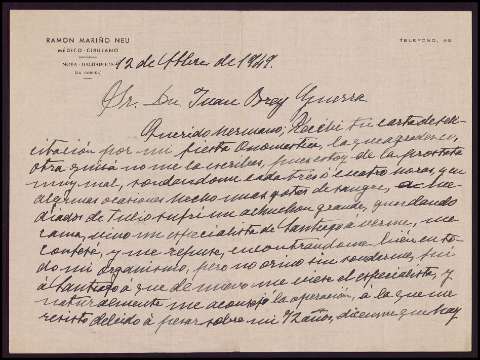 RAMON MARIÑO NEU
MÉDICO-CIRUJANO
TELÉFONO, 
12 de 8bre de 1949.
Sr. Dn Juan Brey Guerra
Querido hermano; Recibí tu carta de feli-
citación por mi fiesta Onomástica, la que agradezco,
otra quizá no me la escribas, pues estoy de la prostata
muy mal, sondandome cada tres ó cuatro horas, que
algunas ocasiones hecho unas gotas de sangre, á me-
diados de Julio sufrí un achuchon grande, guardando
cama, vino un especialista de Santiago á verme, me
y me repuse, encontrándome bien en to-
do mi organismo, pero no orino sin sonderme, fuí
á Santiago á que de nuevo me viese el especialista, y
naturalmente me aconsejó la operación, á la que me
resisto debido á pesar sobre mi 72 años, dicenme que hay